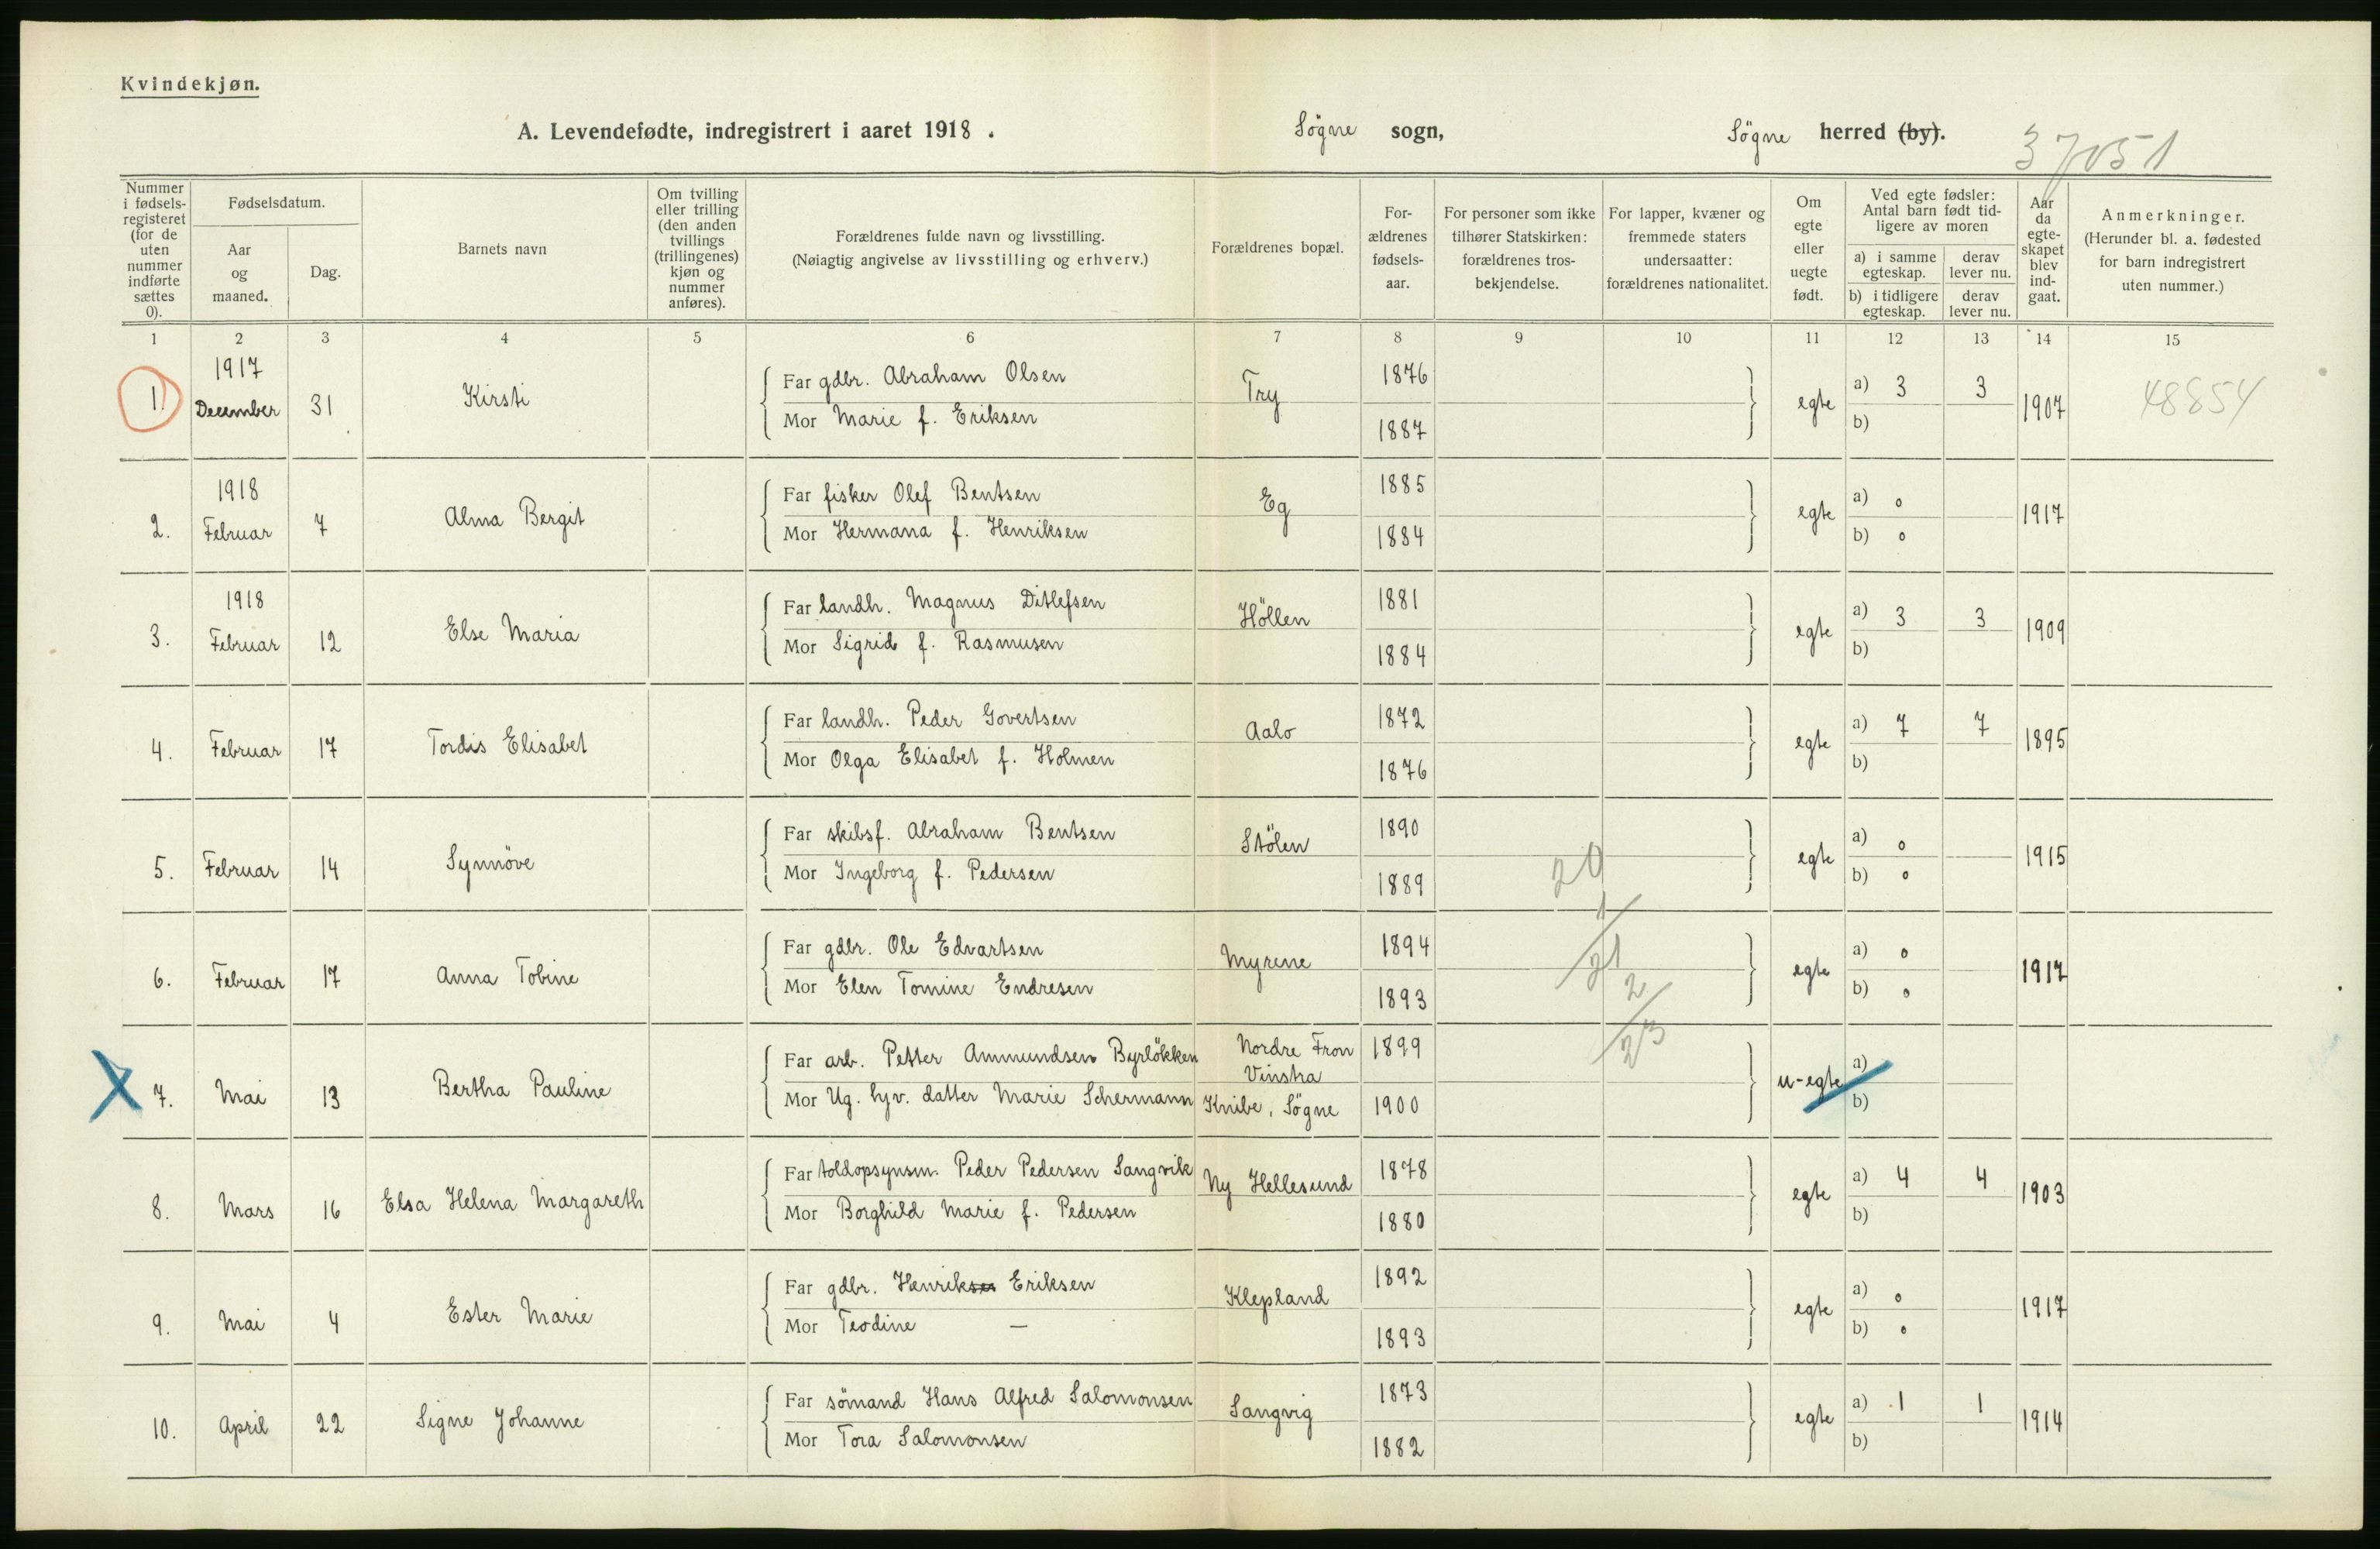 Kvindekjøn.
A. Levendefødte, indregistrert i aaret 1918. Søgne sogn, Søgne herred (by).
37051
Nummer i fødselsregisteret (for de uten nummer indførte sættes 0).
Fødselsdatum.
Aar og maaned.
Dag.
Barnets navn
Om tvilling eller trilling (den anden tvillings (trillingenes) kjøn og nummer anføres).
Forældrenes fulde navn og livsstilling.
(Nøiagtig angivelse av livsstilling og erhverv.)
Forældrenes bopæl.
Forældrenes fødselsaar.
For personer som ikke tilhører Statskirken: forældrenes trosbekjendelse.
For lapper, kvæner og fremmede staters undersaatter: forældrenes nationalitet.
Om egte eller uegte født.
Ved egte fødsler: Antal barn født tidligere av moren
a) i samme egteskap. derav lever nu.
b) i tidligere egteskap. derav lever nu.
Aar da egteskapet blev indgaat.
Anmerkninger.
(Herunder bl. a. fødested for barn indregistrert uten nummer.)
1 2 3 4 5 6 7 8 9 10 11 12 13 14 15
1. 1917 December 31 Kirsti Far gdbr. Abraham Olsen Try 1876 egte a) 3 3 1907 48854
Mor Marie f. Eriksen 1887 b)
2. 1918 Februar 7 Alma Bergit Far fisker Olef Bentsen Eg 1885 egte a) 0 1917
Mor Hermana f. Henriksen 1884 b) 0
3. 1918 Februar 12 Else Maria Far landh. Magnus Ditlefsen Höllen 1881 egte a) 3 3 1909
Mor Sigrid f. Rasmusen 1884 b)
4. Februar 17 Tordis Elisabet Far landh. Peder Govertsen Aalo 1872 egte a) 7 7 1895
Mor Olga Elisabet f. Holmen 1876 b)
5. Februar 14 Synnöve Far skibsf. Abraham Bentsen Stölen 1890 egte a) 0 1915
Mor Ingeborg f. Pedersen 1889 b) 0
20
1
21
2
23
6. Februar 17 Anna Tobine Far gdbr. Ole Edvartsen Myrene 1894 egte a) 0 1917
Mor Elen Tomine Endresen 1893 b) 0
7. Mai 13 Bertha Pauline Far arb. Petter Ammundsen Byrløkken Nordre Fron Vinstra 1899 u-egte a)
Mor Ug. hjv. datter Marie Schermann Knibe, Søgne 1900 b)
8. Mars 16 Elsa Helena Margareth Far toldopsynsm. Peder Pedersen Langvik Ny Hellesund 1878 egte a) 4 4 1903
Mor Borghild Marie f. Pedersen 1880 b)
9. Mai 4 Ester Marie Far gdbr. Henriksen Eriksen Klepland 1892 egte a) 0 1917
Mor Teodine — 1893 b) 0
10. April 22 Signe Johanne Far sömand Hans Alfred Salomonsen Langvig 1873 egte a) 1 1 1914
Mor Tora Salomonsen 1882 b)